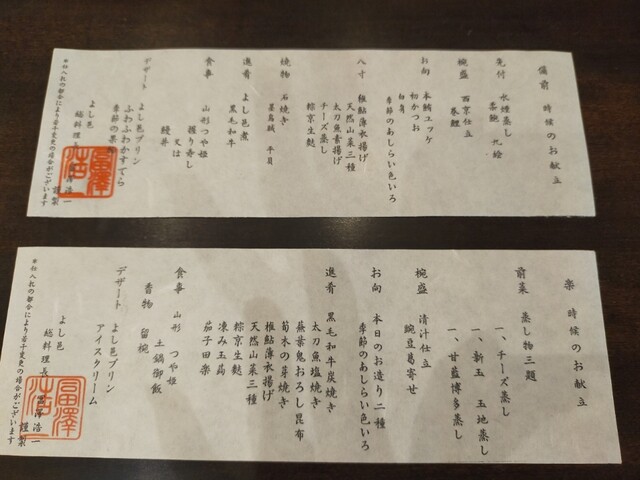 備前　時候のお献立
先付　水煙蒸し
美鮑　丸絵
椀盛　西京仕立
巻鯉
お向　本鮪ユッケ
初かつお
白身
季節のあしらい色いろ
八寸　稚鮎薄衣揚げ
天然山菜三種
太刀魚素揚げ
チーズ蒸し
粽京生麩
焼物　石焼き
墨烏賊　平目
進肴　よし邑煮
黒毛和牛
食事　山形つや姫
握り寿し
又は
鰻丼
デザート　よし邑プリン
ふわふわかすてら
季節の果
よし邑
総料理長　冨澤浩一
謹製
＊仕入れの都合により若干変更の場合がございます
楽　時候のお献立
前菜　蒸し物三題
一、チーズ蒸し
一、新玉　玉地蒸し
一、甘藍博多蒸し
椀盛　清汁仕立
豌豆葛寄せ
お向　本日のお造り二種
季節のあしらい色いろ
進肴　黒毛和牛炭焼き
太刀魚塩焼き
蕪葉鬼おろし昆布
筍木の芽焼き
稚鮎薄衣揚げ
天然山菜三種
粽京生麩
凍み玉蒟
茄子田楽
食事　山形　つや姫
土鍋御飯
香物　留椀
デザート　よし邑プリン
アイスクリーム
よし邑
総料理長　冨澤浩一
謹製
＊仕入れの都合により若干変更の場合がございます